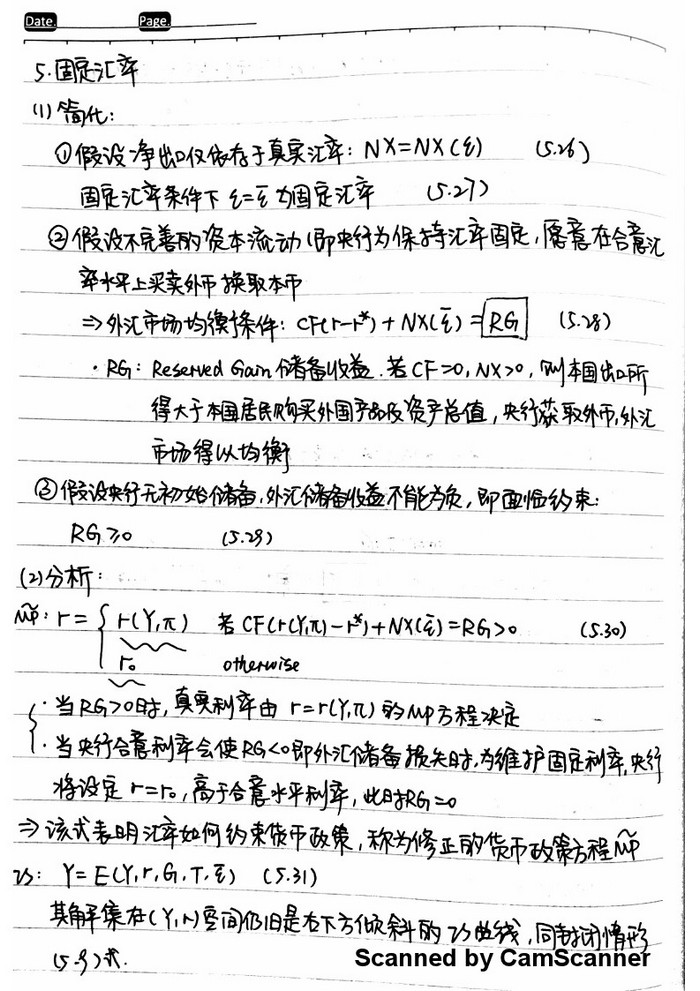 Date. Page.
5.固定汇率
(1)简化:
①假设净出口仅依存于真实汇率: NX=NX(ε) (5.26)
固定汇率条件下 ε=ε̄ 为固定汇率 (5.27)
②假设不完善的资本流动(即央行为保持汇率固定,愿意在合意汇
率水平上买卖外币换取本币
⇒外汇市场均衡条件: CF(r-r*) + NX(ε̄) = RG (5.28)
·RG: Reserved Gain 储备收益. 若CF=0, NX>0, 则本国出口所
得大于本国居民购买外国产品及资产总值, 央行获取外币,外汇
市场得以均衡
③假设央行无初始储备,外汇储备收益不能为负, 即面临约束:
RG≥0 (5.29)
(2)分析:
M̃P: r = { r(Y,π) 若 CF(r(Y,π)-r*)+NX(ε̄)=RG>0 (5.30)
r₀ otherwise
·当RG>0时, 真实利率由 r=r(Y,π) 的MP方程决定
·当央行合意利率会使RG<0即外汇储备损失时,为维护固定利率,央行
将设定 r=r₀, 高于合意水平利率, 此时RG=0
⇒该式表明汇率如何约束货币政策, 称为修正的货币政策方程M̃P
IS: Y=E(Y,r,G,T,ε̄) (5.31)
其解集在(Y,r)空间仍旧是右下方倾斜的IS曲线, 同封闭情形
(5.9)式.
Scanned by CamScanner